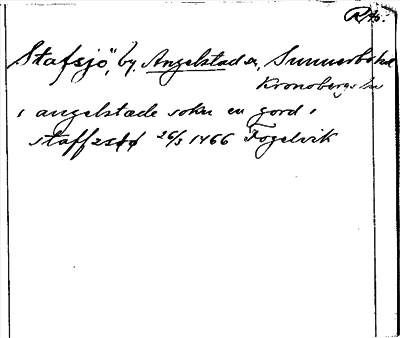 RAp.
Stafsjö, by, Angelstad s., Sunnerbo hd
Kronobergs län
i angelstade sokn en gord i
staffzsiø 26/3 1466 Fogelvik